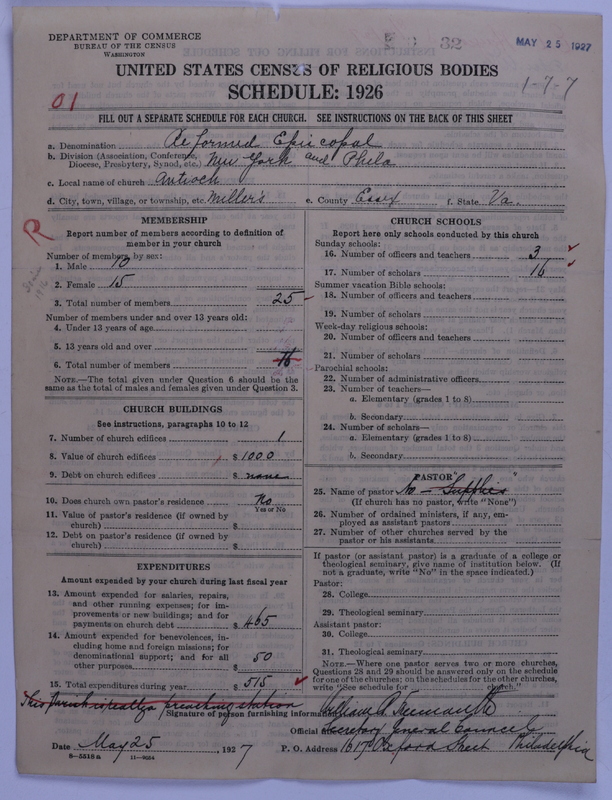 DEPARTMENT OF COMMERCE
BUREAU OF THE CENSUS
WASHINGTON
32
MAY 25 1927
UNITED STATES CENSUS OF RELIGIOUS BODIES
SCHEDULE: 1926
1-7-7
01
FILL OUT A SEPARATE SCHEDULE FOR EACH CHURCH. SEE INSTRUCTIONS ON THE BACK OF THIS SHEET
a. Denomination Reformed Episcopal
b. Division (Association, Conference, Diocese, Presbytery, Synod, etc.) New York and Phila
c. Local name of church Antioch
d. City, town, village, or township, etc. Miller's e. County Essex f. State Va.
R
MEMBERSHIP
Report number of members according to definition of member in your church
Number of members by sex:
1. Male 10
2. Female 15
3. Total number of members 25
Number of members under and over 13 years old:
4. Under 13 years of age
5. 13 years old and over
6. Total number of members 16
NOTE.—The total given under Question 6 should be the same as the total of males and females given under Question 3.
CHURCH BUILDINGS
See instructions, paragraphs 10 to 12
7. Number of church edifices 1
8. Value of church edifices $ 1000
9. Debt on church edifices $ none
10. Does church own pastor's residence No
Yes or No
11. Value of pastor's residence (if owned by church) $
12. Debt on pastor's residence (if owned by church) $
EXPENDITURES
Amount expended by your church during last fiscal year
13. Amount expended for salaries, repairs, and other running expenses; for improvements or new buildings; and for payments on church debt $ 465
14. Amount expended for benevolences, including home and foreign missions; for denominational support; and for all other purposes $ 50
15. Total expenditures during year $ 515
CHURCH SCHOOLS
Report here only schools conducted by this church
Sunday schools:
16. Number of officers and teachers 3
17. Number of scholars 16
Summer vacation Bible schools:
18. Number of officers and teachers
19. Number of scholars
Week-day religious schools:
20. Number of officers and teachers
21. Number of scholars
Parochial schools:
22. Number of administrative officers
23. Number of teachers—
a. Elementary (grades 1 to 8)
b. Secondary
24. Number of scholars—
a. Elementary (grades 1 to 8)
b. Secondary
PASTOR
25. Name of pastor No - Supplies
(If church has no pastor, write "None")
26. Number of ordained ministers, if any, employed as assistant pastors
27. Number of other churches served by the pastor or his assistants
If pastor (or assistant pastor) is a graduate of a college or theological seminary, give name of institution below. (If not a graduate, write "No" in the space indicated.)
Pastor:
28. College
29. Theological seminary
Assistant pastor:
30. College
31. Theological seminary
NOTE.—Where one pastor serves two or more churches, Questions 28 and 29 should be answered only on the schedule for one of the churches; on the schedules for the other churches, write "See schedule for church."
This Parish is really a preaching station
Signature of person furnishing information William A. Freemantle
Official Secretary General Council
Date May 25, 1927 P. O. Address 1617 Oxford Street Philadelphia
8—5518 a 11—9924